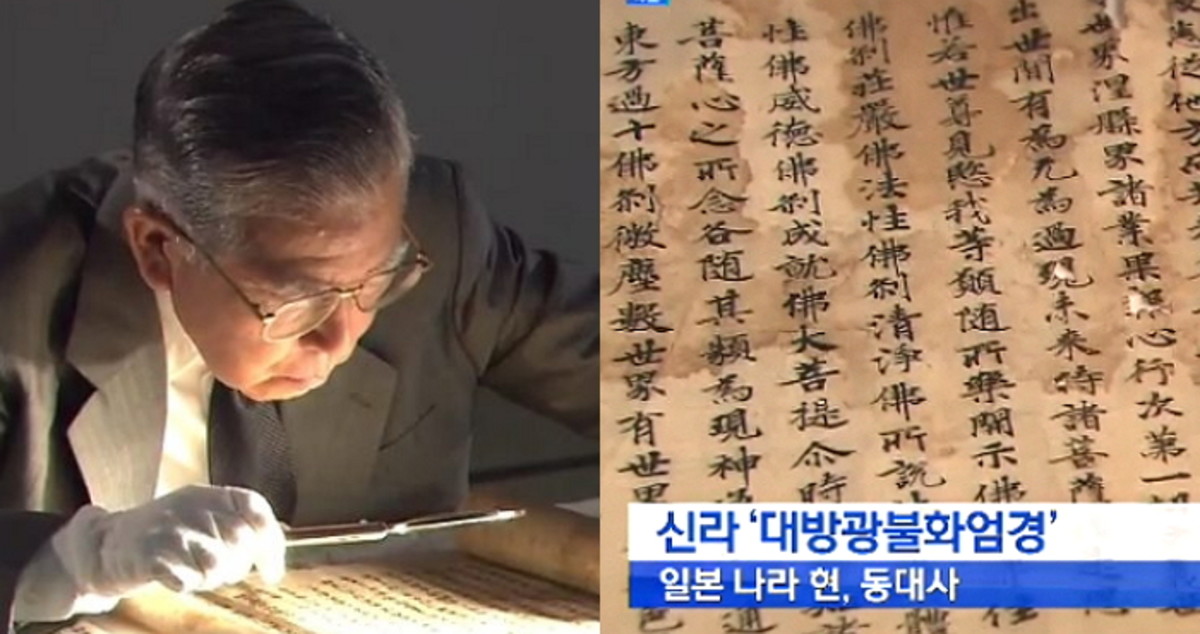 德他方
世界涅槃界諸業果心行次第一
出世間有為无為過現未來時諸菩薩
惟若世尊見愍我等願随所樂開示佛
佛刹莊嚴佛法性佛刹清淨佛所說
性佛威德佛刹成就佛大菩提尒時
菩薩心之所念各随其類為現神通
東方過十佛刹微塵數世界有世界
신라 ‘대방광불화엄경’
일본 나라 현, 동대사